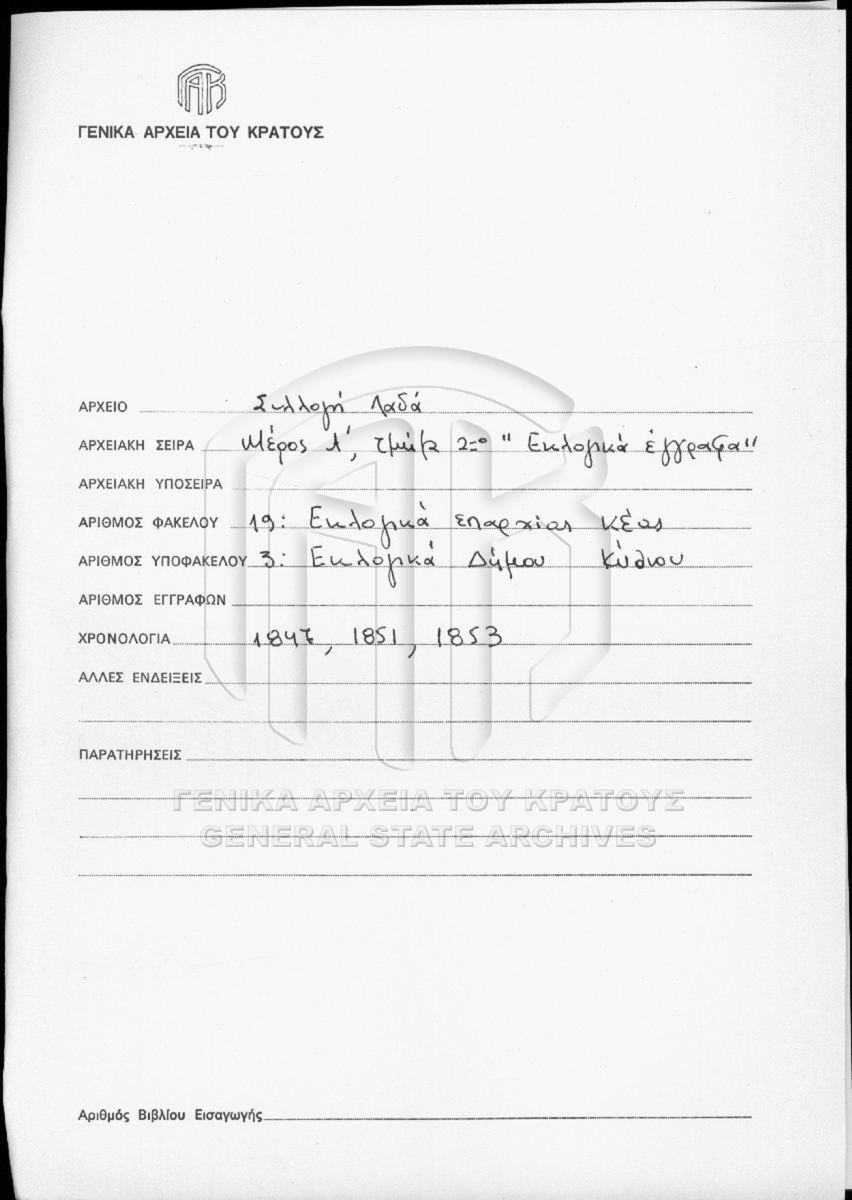 ΓΑΚ
ΓΕΝΙΚΑ ΑΡΧΕΙΑ ΤΟΥ ΚΡΑΤΟΥΣ
ΑΡΧΕΙΟ Συλλογή Λαδά
ΑΡΧΕΙΑΚΗ ΣΕΙΡΑ Μέρος Α', τμήμα 2ο "Εκλογικά έγγραφα"
ΑΡΧΕΙΑΚΗ ΥΠΟΣΕΙΡΑ
ΑΡΙΘΜΟΣ ΦΑΚΕΛΟΥ 19: Εκλογικά επαρχίας Κέας
ΑΡΙΘΜΟΣ ΥΠΟΦΑΚΕΛΟΥ 3: Εκλογικά Δήμου Κύθνου
ΑΡΙΘΜΟΣ ΕΓΓΡΑΦΩΝ
ΧΡΟΝΟΛΟΓΙΑ 1847, 1851, 1853
ΑΛΛΕΣ ΕΝΔΕΙΞΕΙΣ
ΠΑΡΑΤΗΡΗΣΕΙΣ
ΓΕΝΙΚΑ ΑΡΧΕΙΑ ΤΟΥ ΚΡΑΤΟΥΣ
GENERAL STATE ARCHIVES
Αριθμός Βιβλίου Εισαγωγής